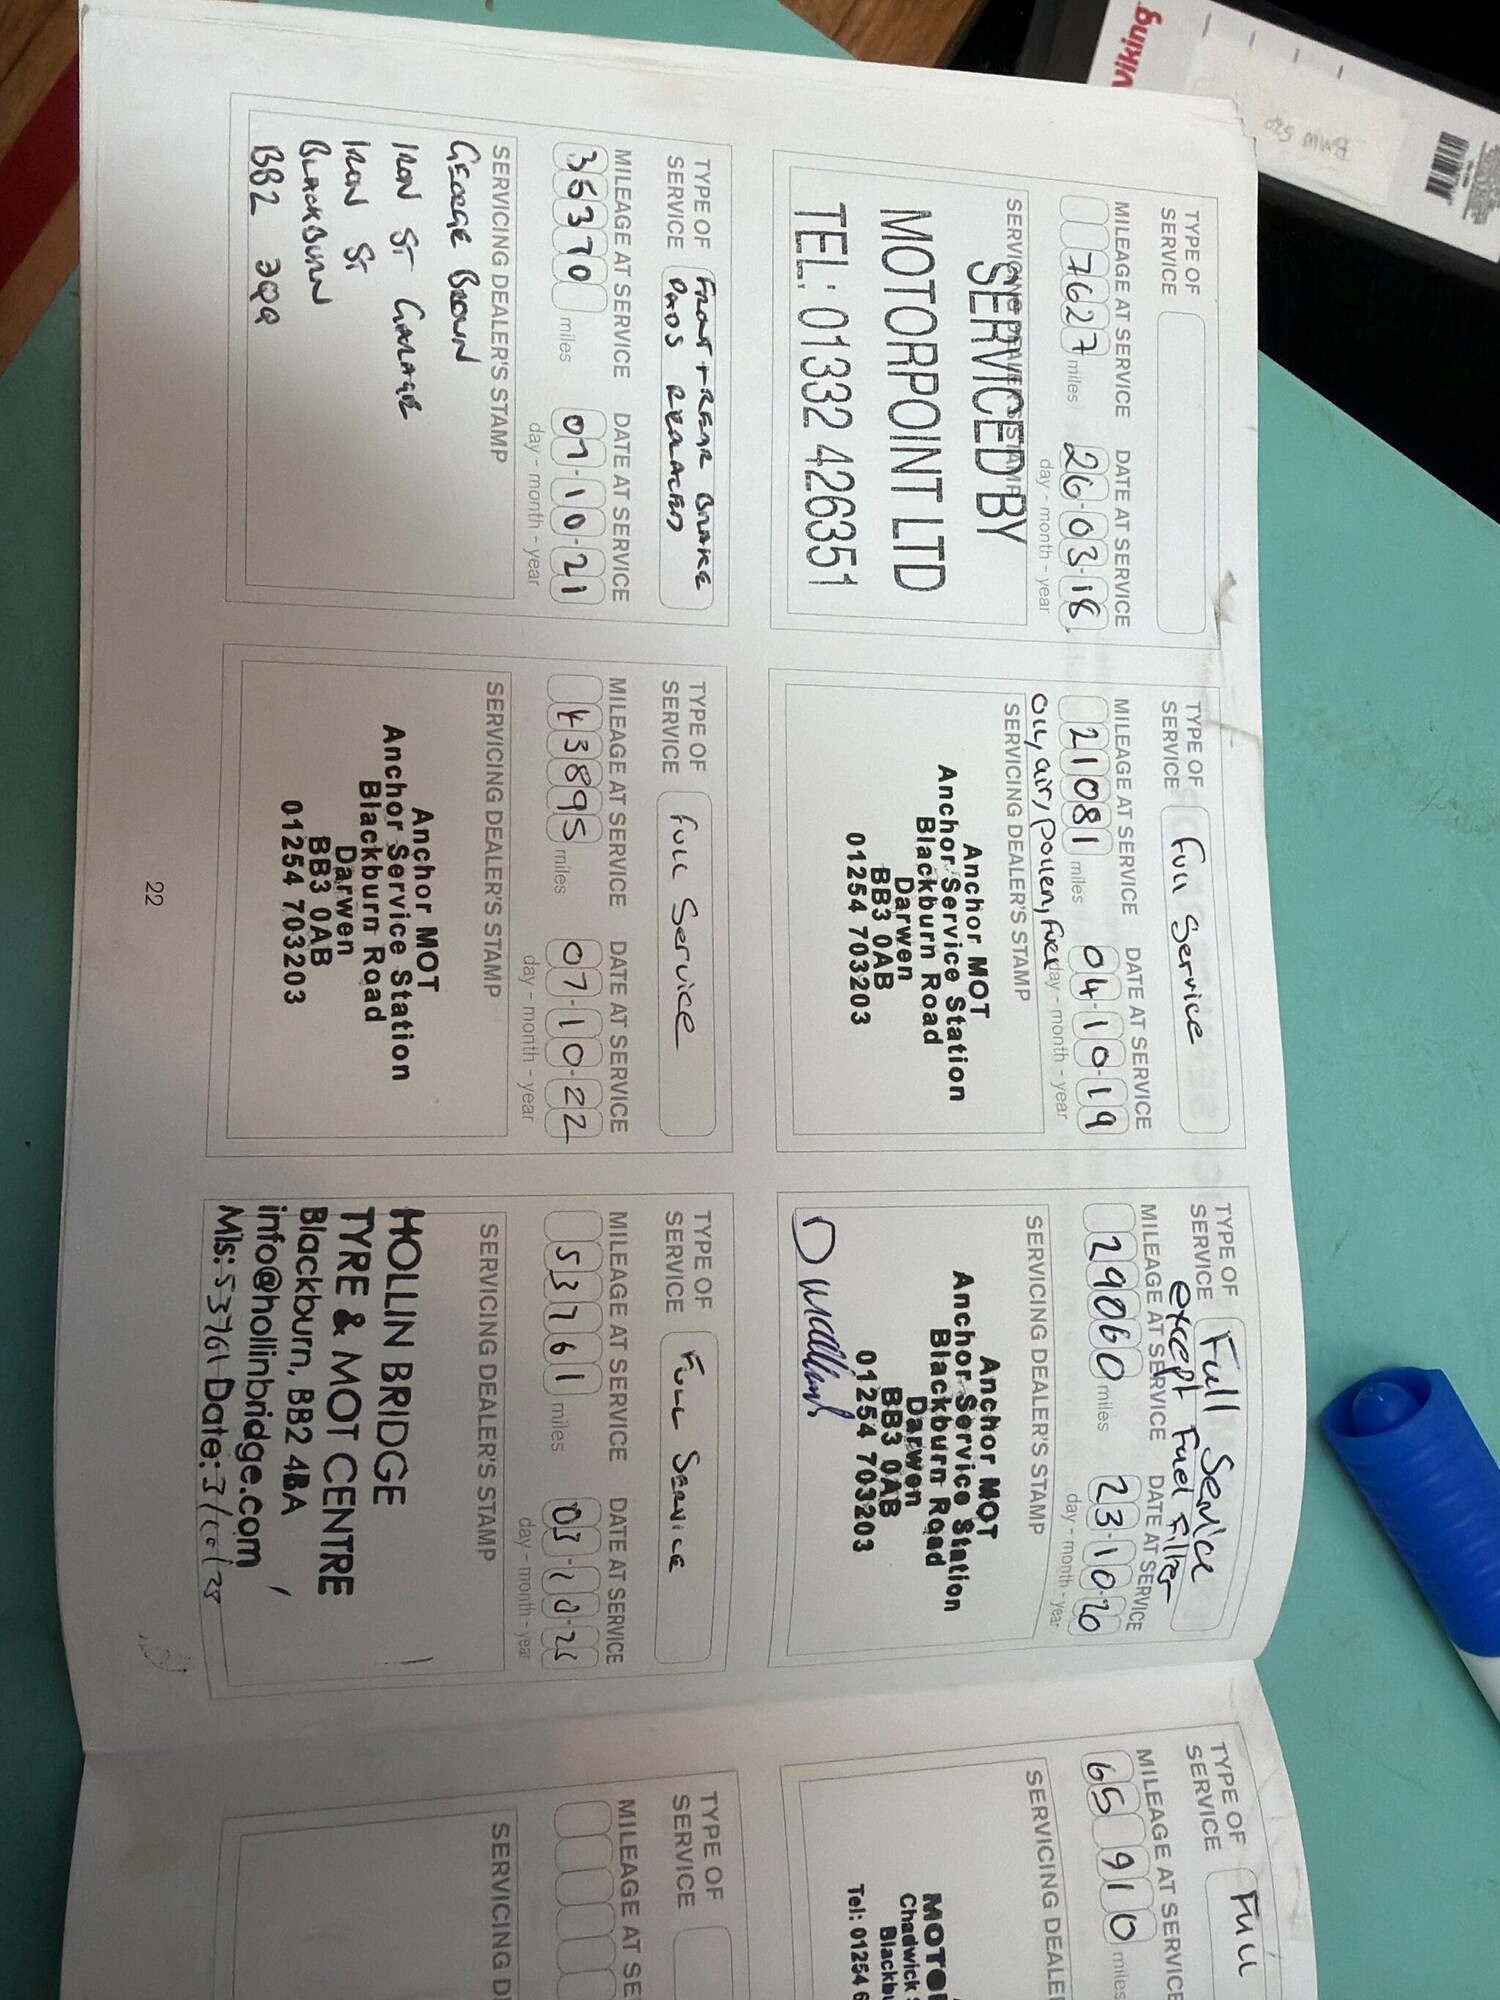 Viking
BMW 520
TYPE OF
SERVICE
MILEAGE AT SERVICE DATE AT SERVICE
7627 miles 26-03-18
day - month - year
SERVICING DEALER'S STAMP
SERVICED BY
MOTORPOINT LTD
TEL: 01332 426351
TYPE OF
SERVICE Full Service
MILEAGE AT SERVICE DATE AT SERVICE
21081 miles 04-10-19
day - month - year
Oil, air, Pollen, Fuel
SERVICING DEALER'S STAMP
Anchor MOT
Anchor Service Station
Blackburn Road
Darwen
BB3 0AB
01254 703203
TYPE OF
SERVICE Full Service
except Fuel Filter
MILEAGE AT SERVICE DATE AT SERVICE
29060 miles 23-10-20
day - month - year
SERVICING DEALER'S STAMP
Anchor MOT
Anchor Service Station
Blackburn Road
Darwen
BB3 0AB
01254 703203
TYPE OF
SERVICE Full
MILEAGE AT SERVICE
65910 miles
SERVICING DEALE
Chadwick
Tel: 01254 6
TYPE OF
SERVICE FRONT + REAR BRAKE
PADS REPLACED
MILEAGE AT SERVICE DATE AT SERVICE
35370 miles 07-10-21
day - month - year
SERVICING DEALER'S STAMP
GEORGE BROWN
IRON ST GARAGE
IRON ST
BLACKBURN
BB2
TYPE OF
SERVICE Full Service
MILEAGE AT SERVICE DATE AT SERVICE
43895 miles 07-10-22
day - month - year
SERVICING DEALER'S STAMP
Anchor MOT
Anchor Service Station
Blackburn Road
Darwen
BB3 0AB
01254 703203
TYPE OF
SERVICE FULL SERVICE
MILEAGE AT SERVICE DATE AT SERVICE
53761 miles 03-10-23
day - month - year
SERVICING DEALER'S STAMP
HOLLIN BRIDGE
TYRE & MOT CENTRE
Blackburn, BB2 4BA
info@hollinbridge.com
Mls: 53761 Date: 3/10/23
TYPE OF
SERVICE
MILEAGE AT SE
SERVICING D
22